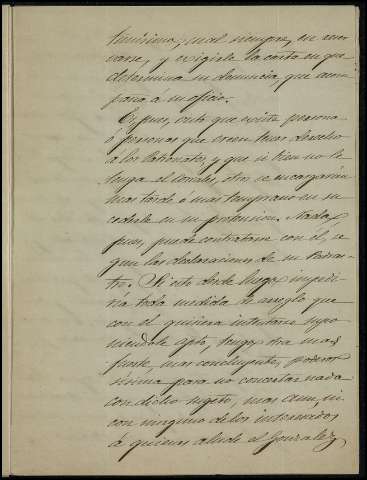 timísimo, mal siempre, en reno
varse, y exigirle la carta en que
determina su denuncia, que acom
paña á su oficio.
Es, pues, visto que existe persona
ó personas que creen tener derecho
a los Patronatos, y que si bien no le
tenga el Corrales, otros se encargarán
mas tarde ó mas temprano en su
cederle en su pretension. Nada,
pues, puede contratarse con él, se
gun las declaraciones de su
Si esto desde luego impedi
ría toda medida de arreglo que
con el quisiera intentarse supo
niendole apto, tengo otra mas
fuerte, mas concluyente, poderosi
sima para no concertar nada
con dicho sujeto, mas aun, ni
con ninguno de los interesados
á quienes alude el Gonzalez,